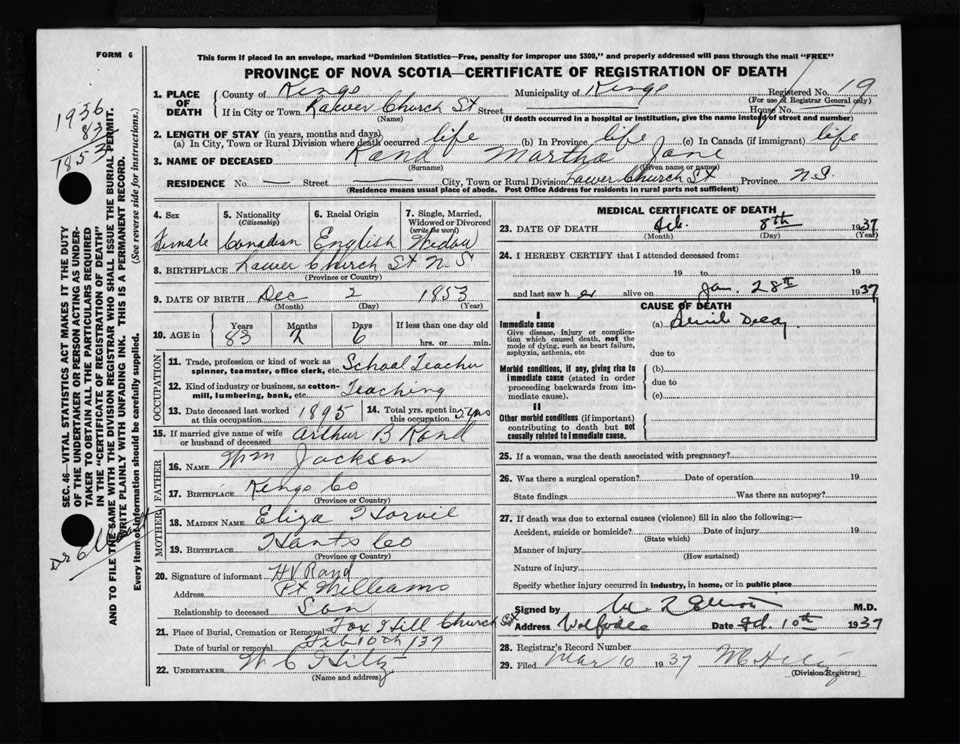 FORM 6
This form if placed in an envelope, marked "Dominion Statistics—Free, penalty for improper use $300," and properly addressed will pass through the mail "FREE"
PROVINCE OF NOVA SCOTIA—CERTIFICATE OF REGISTRATION OF DEATH
Registered No. 19
(For use of Registrar General only)
1. PLACE OF DEATH
County of Kings Municipality of Kings
If in City or Town Lower Church St Street House No.
(Name) (If death occurred in a hospital or institution, give the name instead of street and number)
2. LENGTH OF STAY (in years, months and days)
(a) In City, Town or Rural Division where death occurred life (b) In Province life (c) In Canada (if immigrant) life
3. NAME OF DECEASED Rand Martha Jane
(Surname) (Given name or names)
RESIDENCE No. — Street — City, Town or Rural Division Lower Church St Province N.S.
(Residence means usual place of abode. Post Office Address for residents in rural parts not sufficient)
4. Sex Female
5. Nationality (Citizenship) Canadian
6. Racial Origin English
7. Single, Married, Widowed or Divorced (write the word) Widow
8. BIRTHPLACE Lower Church St N S
(Province or Country)
9. DATE OF BIRTH Dec 2 1853
(Month) (Day) (Year)
10. AGE in Years 83 Months 2 Days 6 If less than one day old
hrs. or min.
OCCUPATION
11. Trade, profession or kind of work as spinner, teamster, office clerk, etc. School Teacher
12. Kind of industry or business, as cotton-mill, lumbering, bank, etc. Teaching
13. Date deceased last worked at this occupation 1895
14. Total yrs. spent in this occupation 5 yrs
15. If married give name of wife or husband of deceased Arthur B Rand
FATHER
16. NAME Wm Jackson
17. BIRTHPLACE Kings Co
(Province or Country)
MOTHER
18. MAIDEN NAME Eliza
19. BIRTHPLACE Hants Co
(Province or Country)
20. Signature of informant H V Rand
Address Pt Williams
Relationship to deceased Son
21. Place of Burial, Cremation or Removal Fox Hill Church St
Date of burial or removal Feb 10th 137
22. UNDERTAKER W C Hiltz
(Name and address)
MEDICAL CERTIFICATE OF DEATH
23. DATE OF DEATH Feb. 8th 1937
(Month) (Day) (Year)
24. I HEREBY CERTIFY that I attended deceased from
19 to 19
and last saw her alive on Jan. 28th 1937
CAUSE OF DEATH
I
Immediate cause (a) Senile Decay
Give disease, injury or complication which caused death, not the mode of dying, such as heart failure, asphyxia, asthenia, etc
due to
Morbid conditions, if any, giving rise to immediate cause (stated in order proceeding backwards from immediate cause).
(b)
due to
(c)
II
Other morbid conditions (if important) contributing to death but not causally related to immediate cause.
25. If a woman, was the death associated with pregnancy?
26. Was there a surgical operation? Date of operation 19
State findings Was there an autopsy?
27. If death was due to external causes (violence) fill in also the following:—
Accident, suicide or homicide? Date of injury 19
(State which)
Manner of injury
(How sustained)
Nature of injury
Specify whether injury occurred in industry, in home, or in public place
Signed by M.D.
Address Wolfville Date Feb. 10th 1937
28. Registrar's Record Number
29. Filed Mar 10 1937
(Division Registrar)
1936
83
1853
SEC. 46—VITAL STATISTICS ACT MAKES IT THE DUTY OF THE UNDERTAKER OR PERSON ACTING AS UNDERTAKER TO OBTAIN ALL THE PARTICULARS REQUIRED IN THE "CERTIFICATE OF REGISTRATION OF DEATH"
AND TO FILE THE SAME WITH THE DIVISION REGISTRAR WHO SHALL ISSUE THE BURIAL PERMIT.
WRITE PLAINLY WITH UNFADING INK. THIS IS A PERMANENT RECORD.
Every item of information should be carefully supplied. (See reverse side for instructions.)